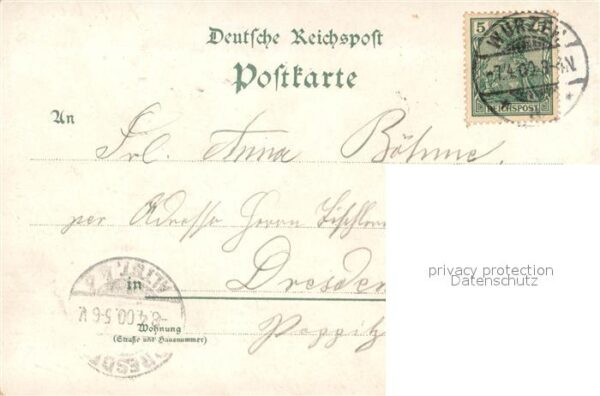 Deutsche Reichspost
Postkarte
5
WURZEN
-7.4.00.
REICHSPOST
An
Frl. Anna Böhme,
per Adresse Herrn
Dresden
in
ALTST.
-8.4.00.5-6V.
DRESDEN
Wohnung
(Straße und Hausnummer)
privacy protection
Datenschutz